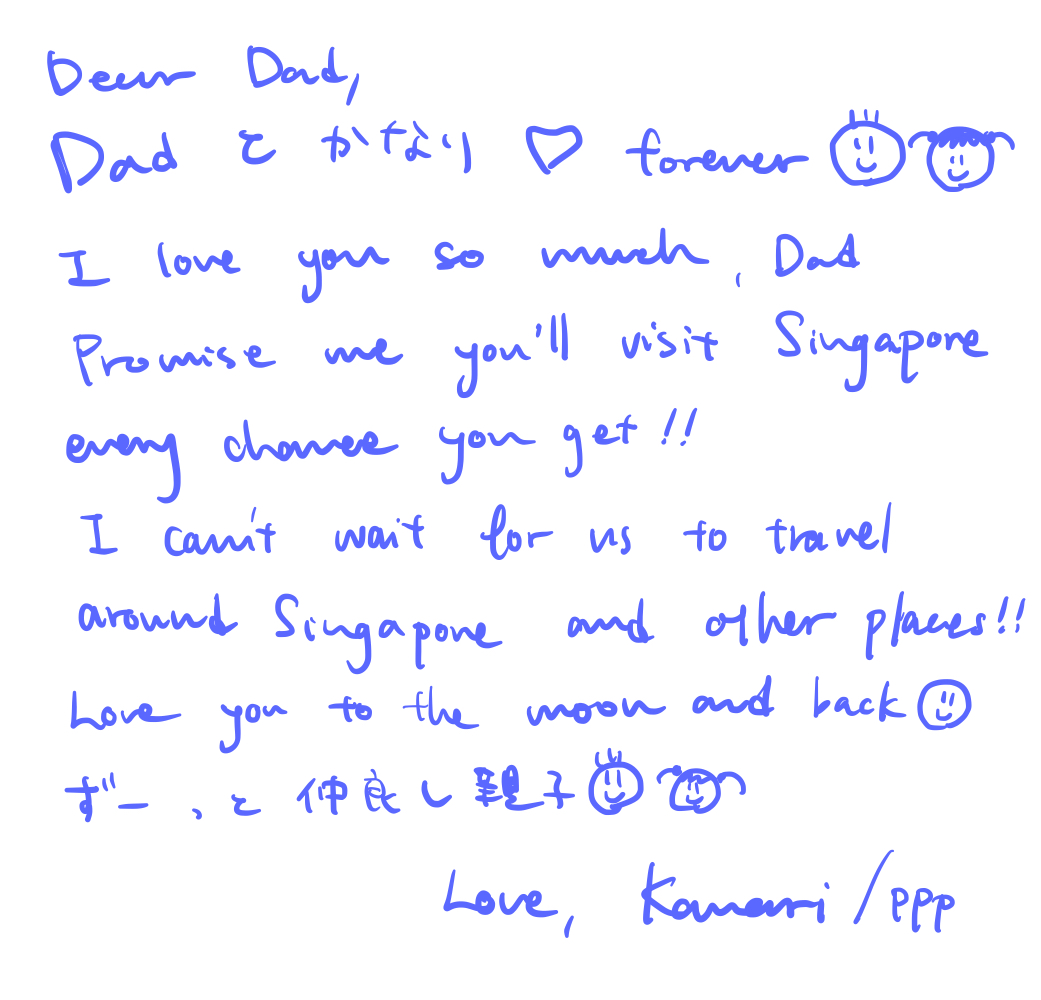 Dear Dad,
Dad と かなり ♡ forever
I love you so much, Dad
Promise me you'll visit Singapore
every chance you get!!
I can't wait for us to travel
around Singapore and other places!!
Love you to the moon and back
ずーっと仲良し親子
Love, Kanari/ppp